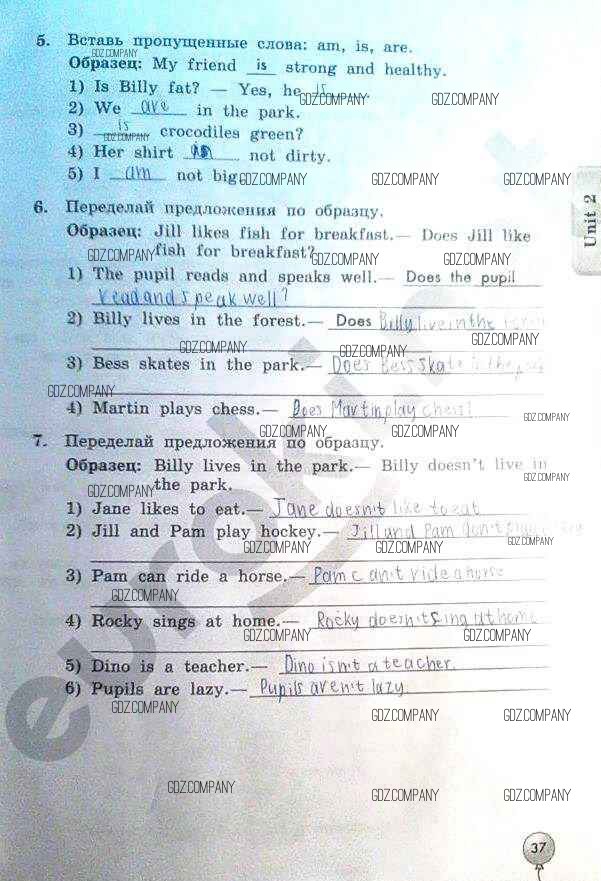 5. Вставь пропущенные слова: am, is, are.
GDZ.COMPANY
Образец: My friend is strong and healthy.
1) Is Billy fat? — Yes, he is.
GDZ.COMPANY GDZ.COMPANY
2) We are in the park.
3) is crocodiles green?
GDZ.COMPANY
4) Her shirt not dirty.
5) I am not big.
GDZ.COMPANY GDZ.COMPANY GDZ.COMPANY
Unit 2
6. Переделай предложения по образцу.
Образец: Jill likes fish for breakfast.— Does Jill like
GDZ.COMPANY fish for breakfast? GDZ.COMPANY GDZ.COMPANY
1) The pupil reads and speaks well.— Does the pupil
read and speak well?
2) Billy lives in the forest.— Does Billy live in the
GDZ.COMPANY GDZ.COMPANY GDZ.COMPANY
3) Bess skates in the park.— Does Bess skate
GDZ.COMPANY
4) Martin plays chess.— Does Martin play chess?
GDZ.COMPANY GDZ.COMPANY GDZ.COMPANY
7. Переделай предложения по образцу.
Образец: Billy lives in the park.— Billy doesn't live in
GDZ.COMPANY the park. GDZ.COMPANY
1) Jane likes to eat.— Jane doesn't like to eat
2) Jill and Pam play hockey.— Jill and Pam don't play
GDZ.COMPANY GDZ.COMPANY GDZ.COMPANY
3) Pam can ride a horse.— Pam can't ride a horse
GDZ.COMPANY
4) Rocky sings at home.— Rocky doesn't sing at home
GDZ.COMPANY GDZ.COMPANY GDZ.COMPANY
5) Dino is a teacher.— Dino isn't a teacher.
6) Pupils are lazy.— Pupils aren't lazy
GDZ.COMPANY GDZ.COMPANY GDZ.COMPANY
GDZ.COMPANY GDZ.COMPANY GDZ.COMPANY
37